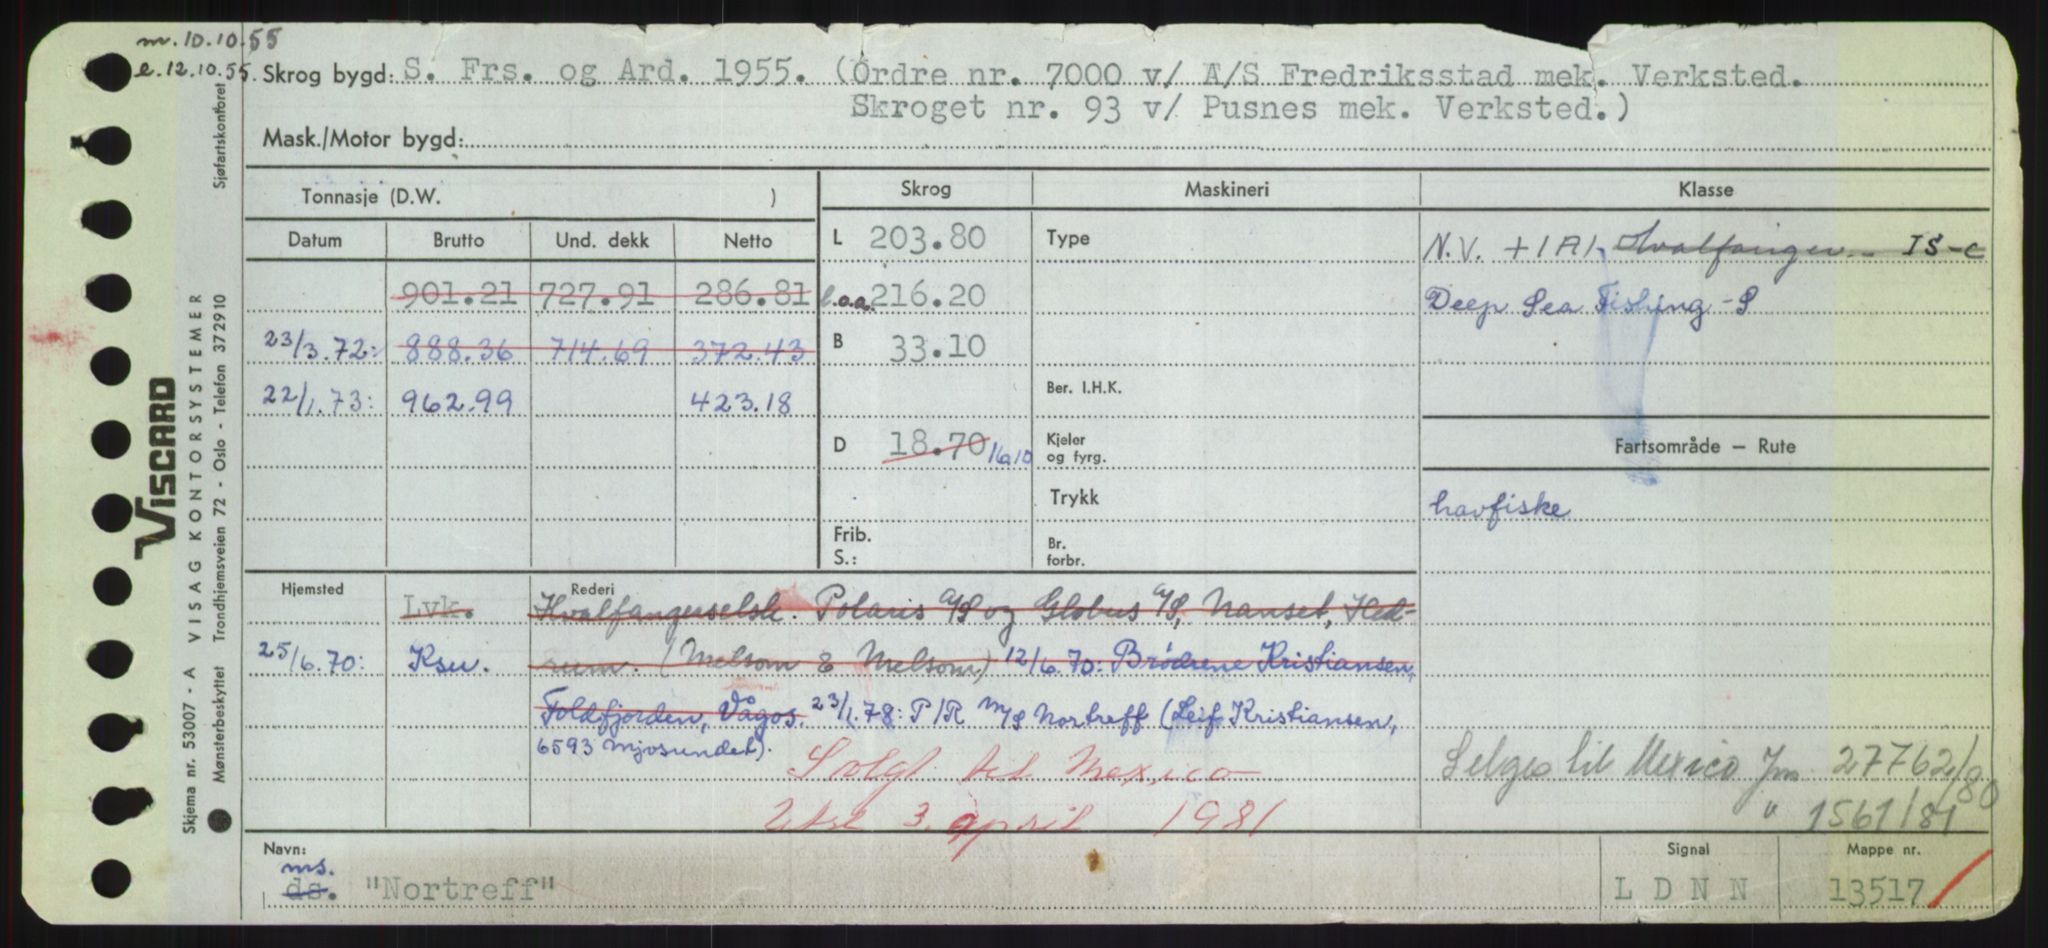 m. 10.10.55
e. 12.10.55. Skrog bygd: S. Frs. og Ard. 1955. (Ordre nr. 7000 v/ A/S Fredriksstad mek. Verksted.
Skroget nr. 93 v/ Pusnes mek. Verksted.)
Mask./Motor bygd:
Tonnasje (D.W. )
Skrog Maskineri Klasse
Datum Brutto Und. dekk Netto
L 203.80 Type N.V. +1A1 Hvalfanger IS-C
901.21 727.91 286.81 l.o.a. 216.20 Deep Sea Fishing -S
23/3.72: 888.36 714.69 372.43 B 33.10
22/1.73: 962.99 423.18 Ber. I.H.K.
D 18.70 16.10 Kjeler og fyrg. Fartsområde – Rute
Trykk havfiske
Frib. S.: Br. forbr.
Hjemsted Rederi
Lvk. Hvalfangerselsk. Polaris A/S og Globus A/S, Nanset, Hed-
25/6.70: Ksu. rum. (Melsom & Melsom) 12/6.70: Brødrene Kristiansen,
Foldfjorden, Vågos. 23/1.78: P/R M/S Nortreff (Leif Kristiansen,
6593 Mjosundet).
Solgt til Mexico
3. april 1981
Selges til Mexico Jnr. 27762/80
" 1561/81
Navn: Signal Mappe nr.
ms.
ds. "Nortreff" LDNN 13517
VISCARD
VISAG KONTORSYSTEMER
Skjema nr. 53007 - A
Mønsterbeskyttet Trondhjemsveien 72 - Oslo - Telefon 372910
Sjøfartskontoret